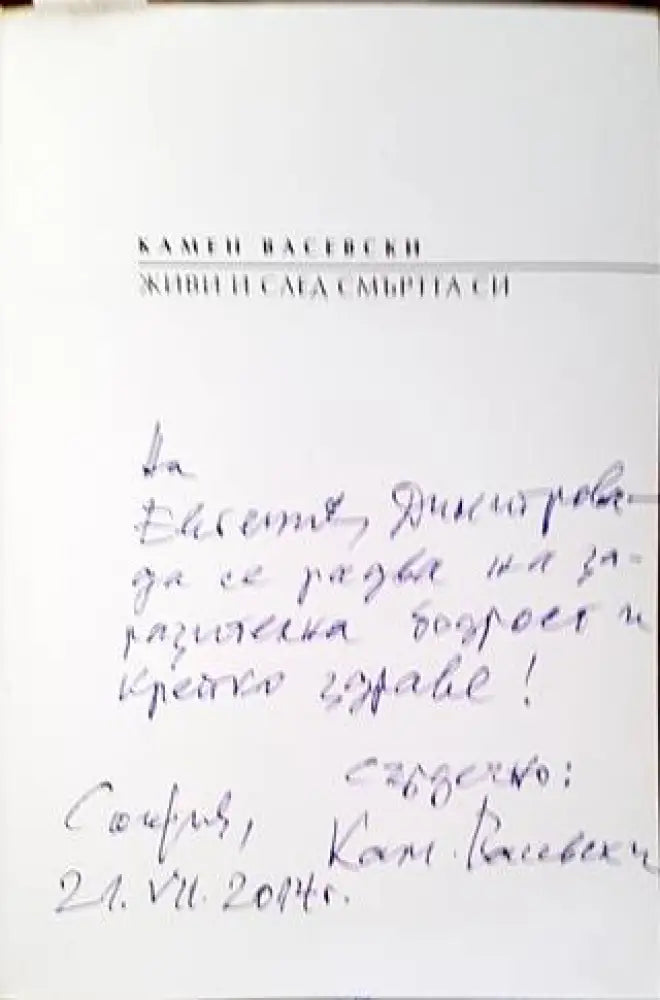 КАМЕН ВАСЕВСКИ
ЖИВИ И СЛЕД СМЪРТТА СИ
На
Евгения Димитрова -
да се радва на за-
разителна бодрост и
крепко здраве!
сърдечно:
София, Кам. Васевски
21. VII. 2014 г.